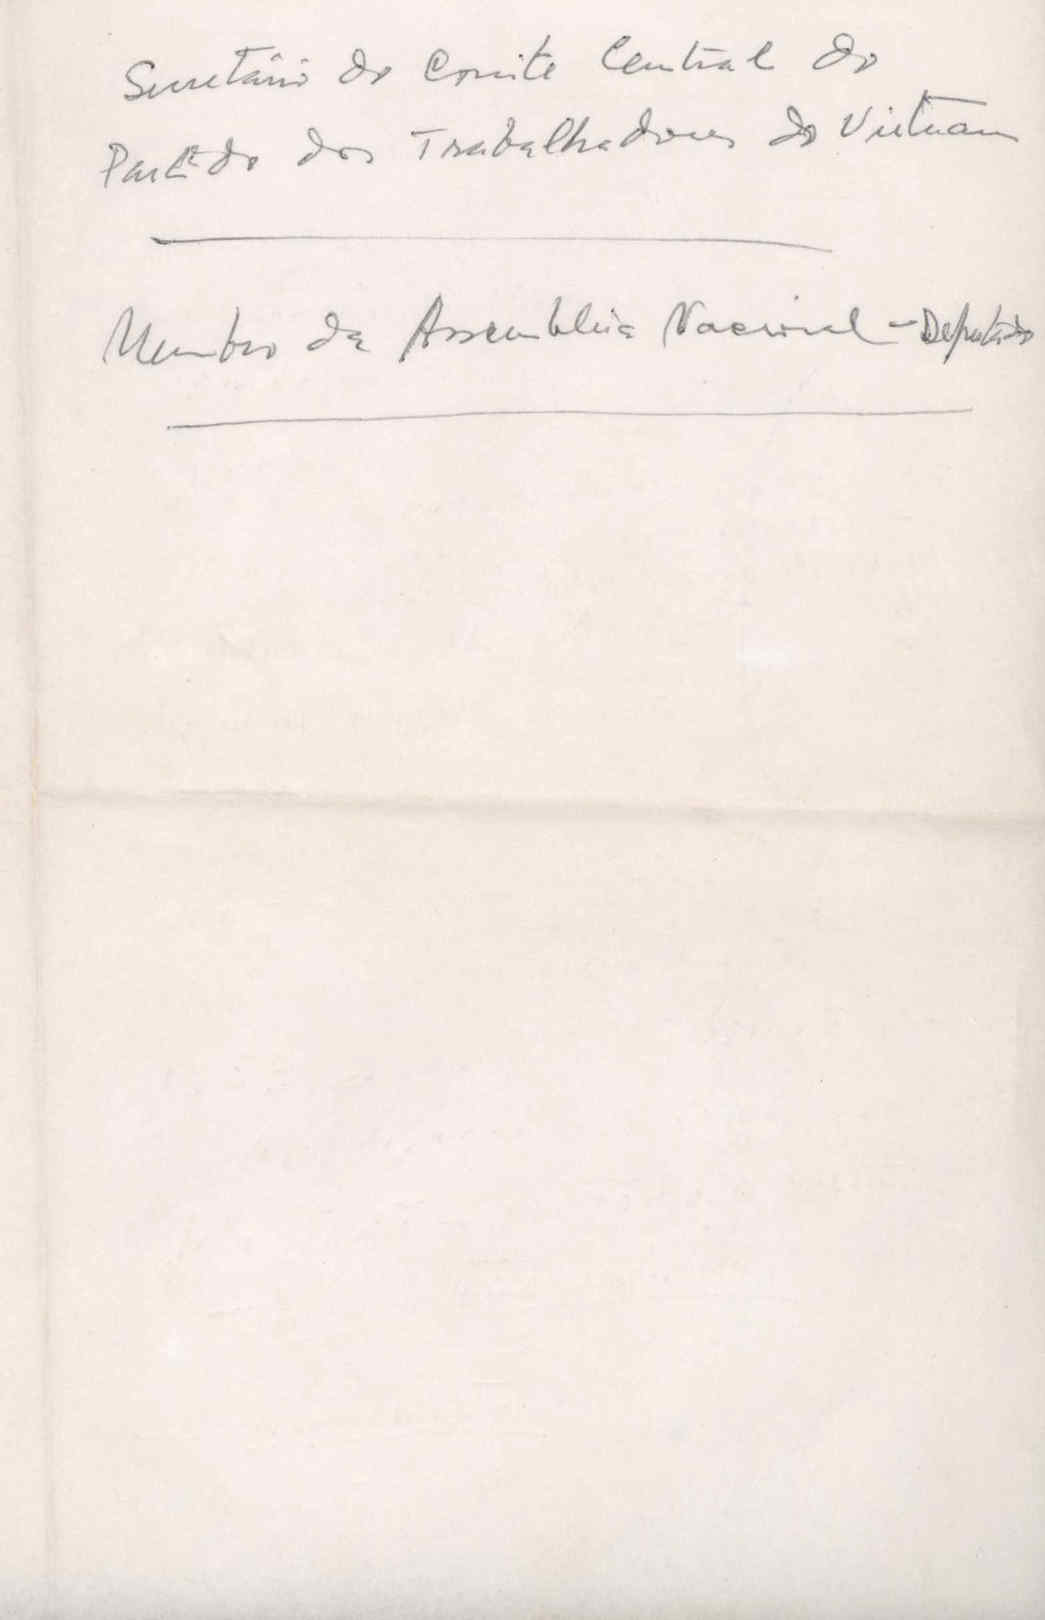 Secretário do Comite Central do
Partido dos Trabalhadores do Vietnam
Membro da Assembleia Nacional - Deputado